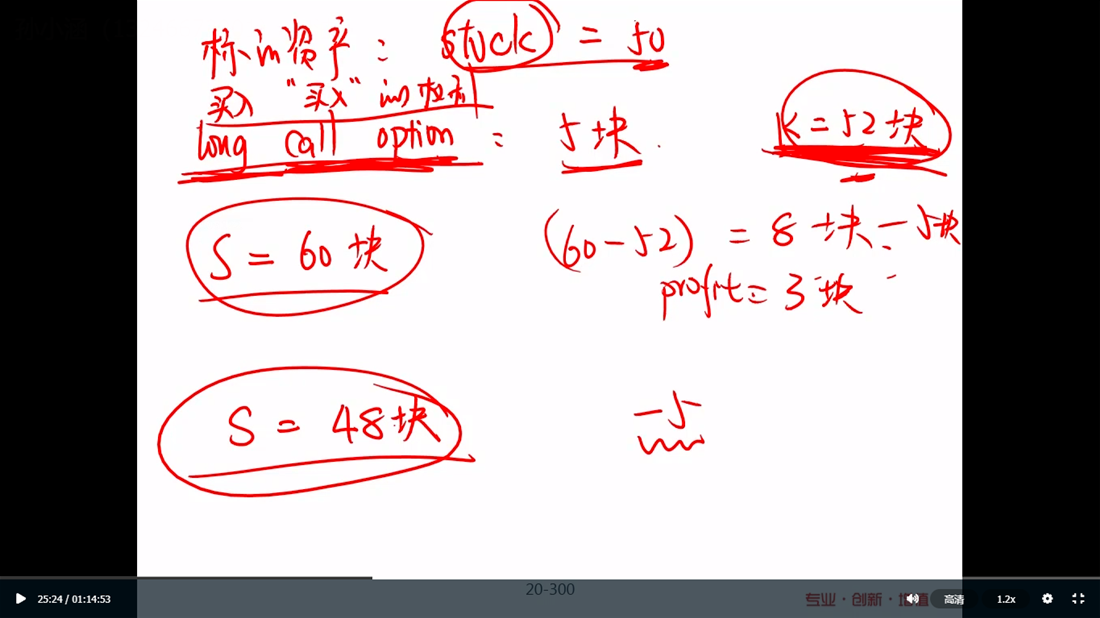 标的资产：stock = 50
买入“买入”的权利
long call option： 5块. K=52块
S = 60块 (60-52) = 8块-5块=
profit= 3块
S = 48块 -5
20-300
25:24 / 01:14:53 专业·创新·增值 高清 1.2x